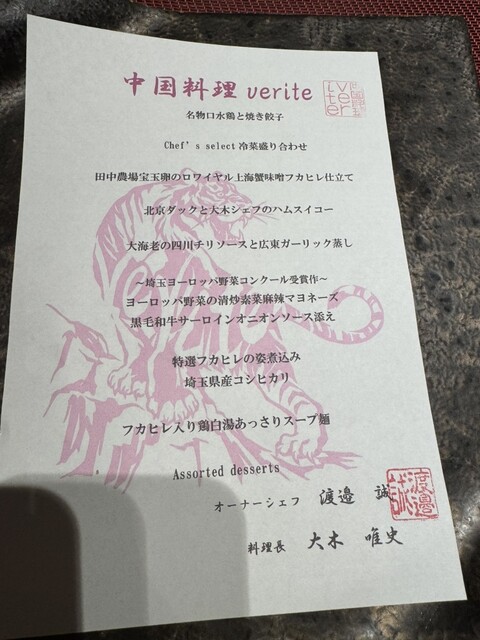 中国料理 verite
名物口水鶏と焼き餃子
Chef's select 冷菜盛り合わせ
田中農場宝玉卵のロワイヤル上海蟹味噌フカヒレ仕立て
北京ダックと大木シェフのハムスイコー
大海老の四川チリソースと広東ガーリック蒸し
～埼玉ヨーロッパ野菜コンクール受賞作～
ヨーロッパ野菜の清炒素菜麻辣マヨネーズ
黒毛和牛サーロインオニオンソース添え
特選フカヒレの姿煮込み
埼玉県産コシヒカリ
フカヒレ入り鶏白湯あっさりスープ麺
Assorted desserts
オーナーシェフ 渡邉 誠
渡邉誠
料理長 大木 唯史